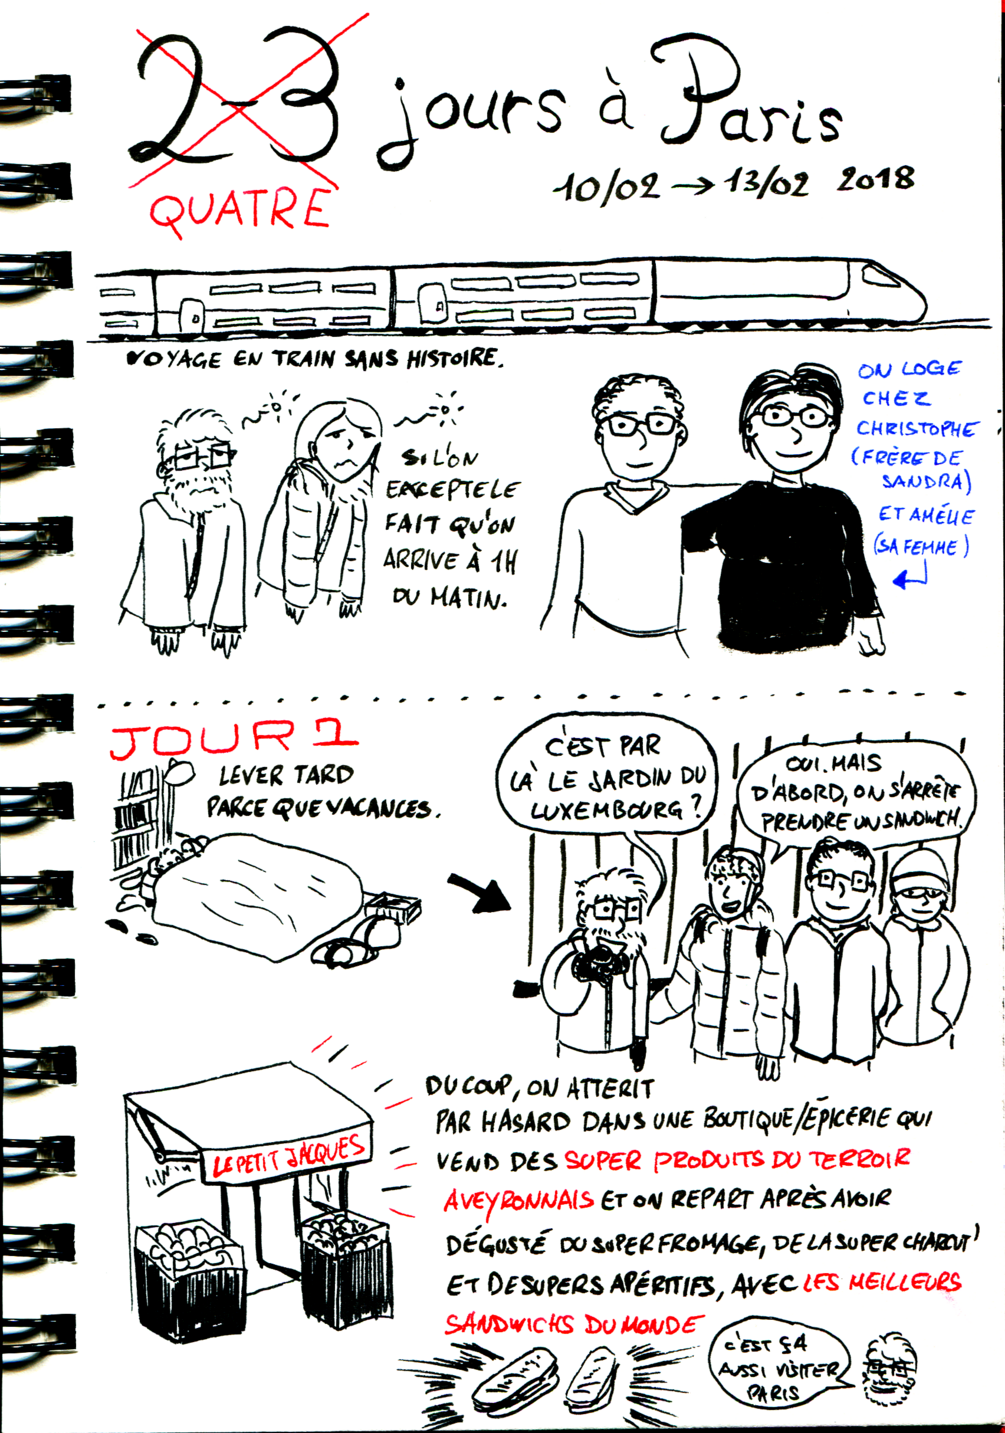 2-3 jours à Paris
QUATRE
10/02 → 13/02 2018
VOYAGE EN TRAIN SANS HISTOIRE.
SI L'ON
EXCEPTE LE
FAIT QU'ON
ARRIVE À 1H
DU MATIN.
ON LOGE
CHEZ
CHRISTOPHE
(FRÈRE DE
SANDRA)
ET AMÉLIE
(SA FEMME)
JOUR 1
LEVER TARD
PARCE QUE VACANCES.
C'EST PAR
LÀ LE JARDIN DU
LUXEMBOURG ?
OUI. MAIS
D'ABORD, ON S'ARRÊTE
PRENDRE UN SANDWICH.
LE PETIT JACQUES
DU COUP, ON ATTERIT
PAR HASARD DANS UNE BOUTIQUE/ÉPICERIE QUI
VEND DES SUPER PRODUITS DU TERROIR
AVEYRONNAIS ET ON REPART APRÈS AVOIR
DÉGUSTÉ DU SUPER FROMAGE, DE LA SUPER CHARCUT'
ET DE SUPERS APÉRITIFS, AVEC LES MEILLEURS
SANDWICHS DU MONDE
C'EST ÇA
AUSSI VISITER
PARIS